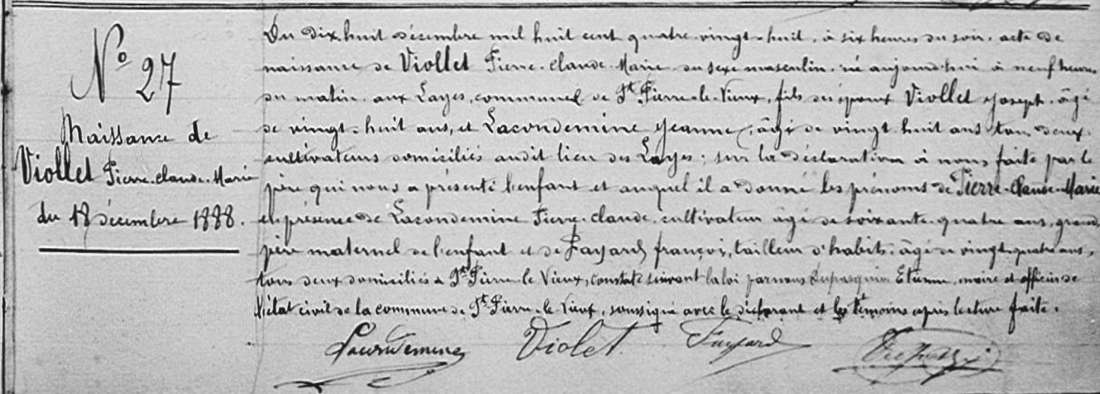 N° 27
Naissance de
Viollet Pierre-Claude-Marie
du 18 décembre 1888.
Du dix huit décembre mil huit cent quatre-vingt-huit, à six heures du soir, acte de
naissance de Viollet Pierre-Claude-Marie du sexe masculin, né aujourd'hui à neuf heures
du matin aux Layes, commune de St Pierre-le-Vieux, fils des époux Viollet Joseph, âgé
de vingt-huit ans, et Lacondemine Jeanne, âgé de vingt huit ans tou deux
cultivateurs domiciliés audit lieu des Layes; sur la déclaration à nous faite par le
père qui nous a présenté l'enfant et auquel il a donné les prénoms de Pierre-Claude-Marie
en présence de Lacondemine Pierre-Claude, cultivateur âgé de soixante-quatre ans, grand
père maternel de l'enfant et de Fayard françois, tailleur d'habits, âgé de vingt quatre ans,
tous deux domiciliés à St Pierre-le Vieux, constaté suivant la loi par nous Dupasquier Etienne, maire et officier de
l'état civil de la commune de St Pierre-le Vieux, soussigné avec le déclarant et les témoins après lecture faite.
Lacondemine Violet Fayard